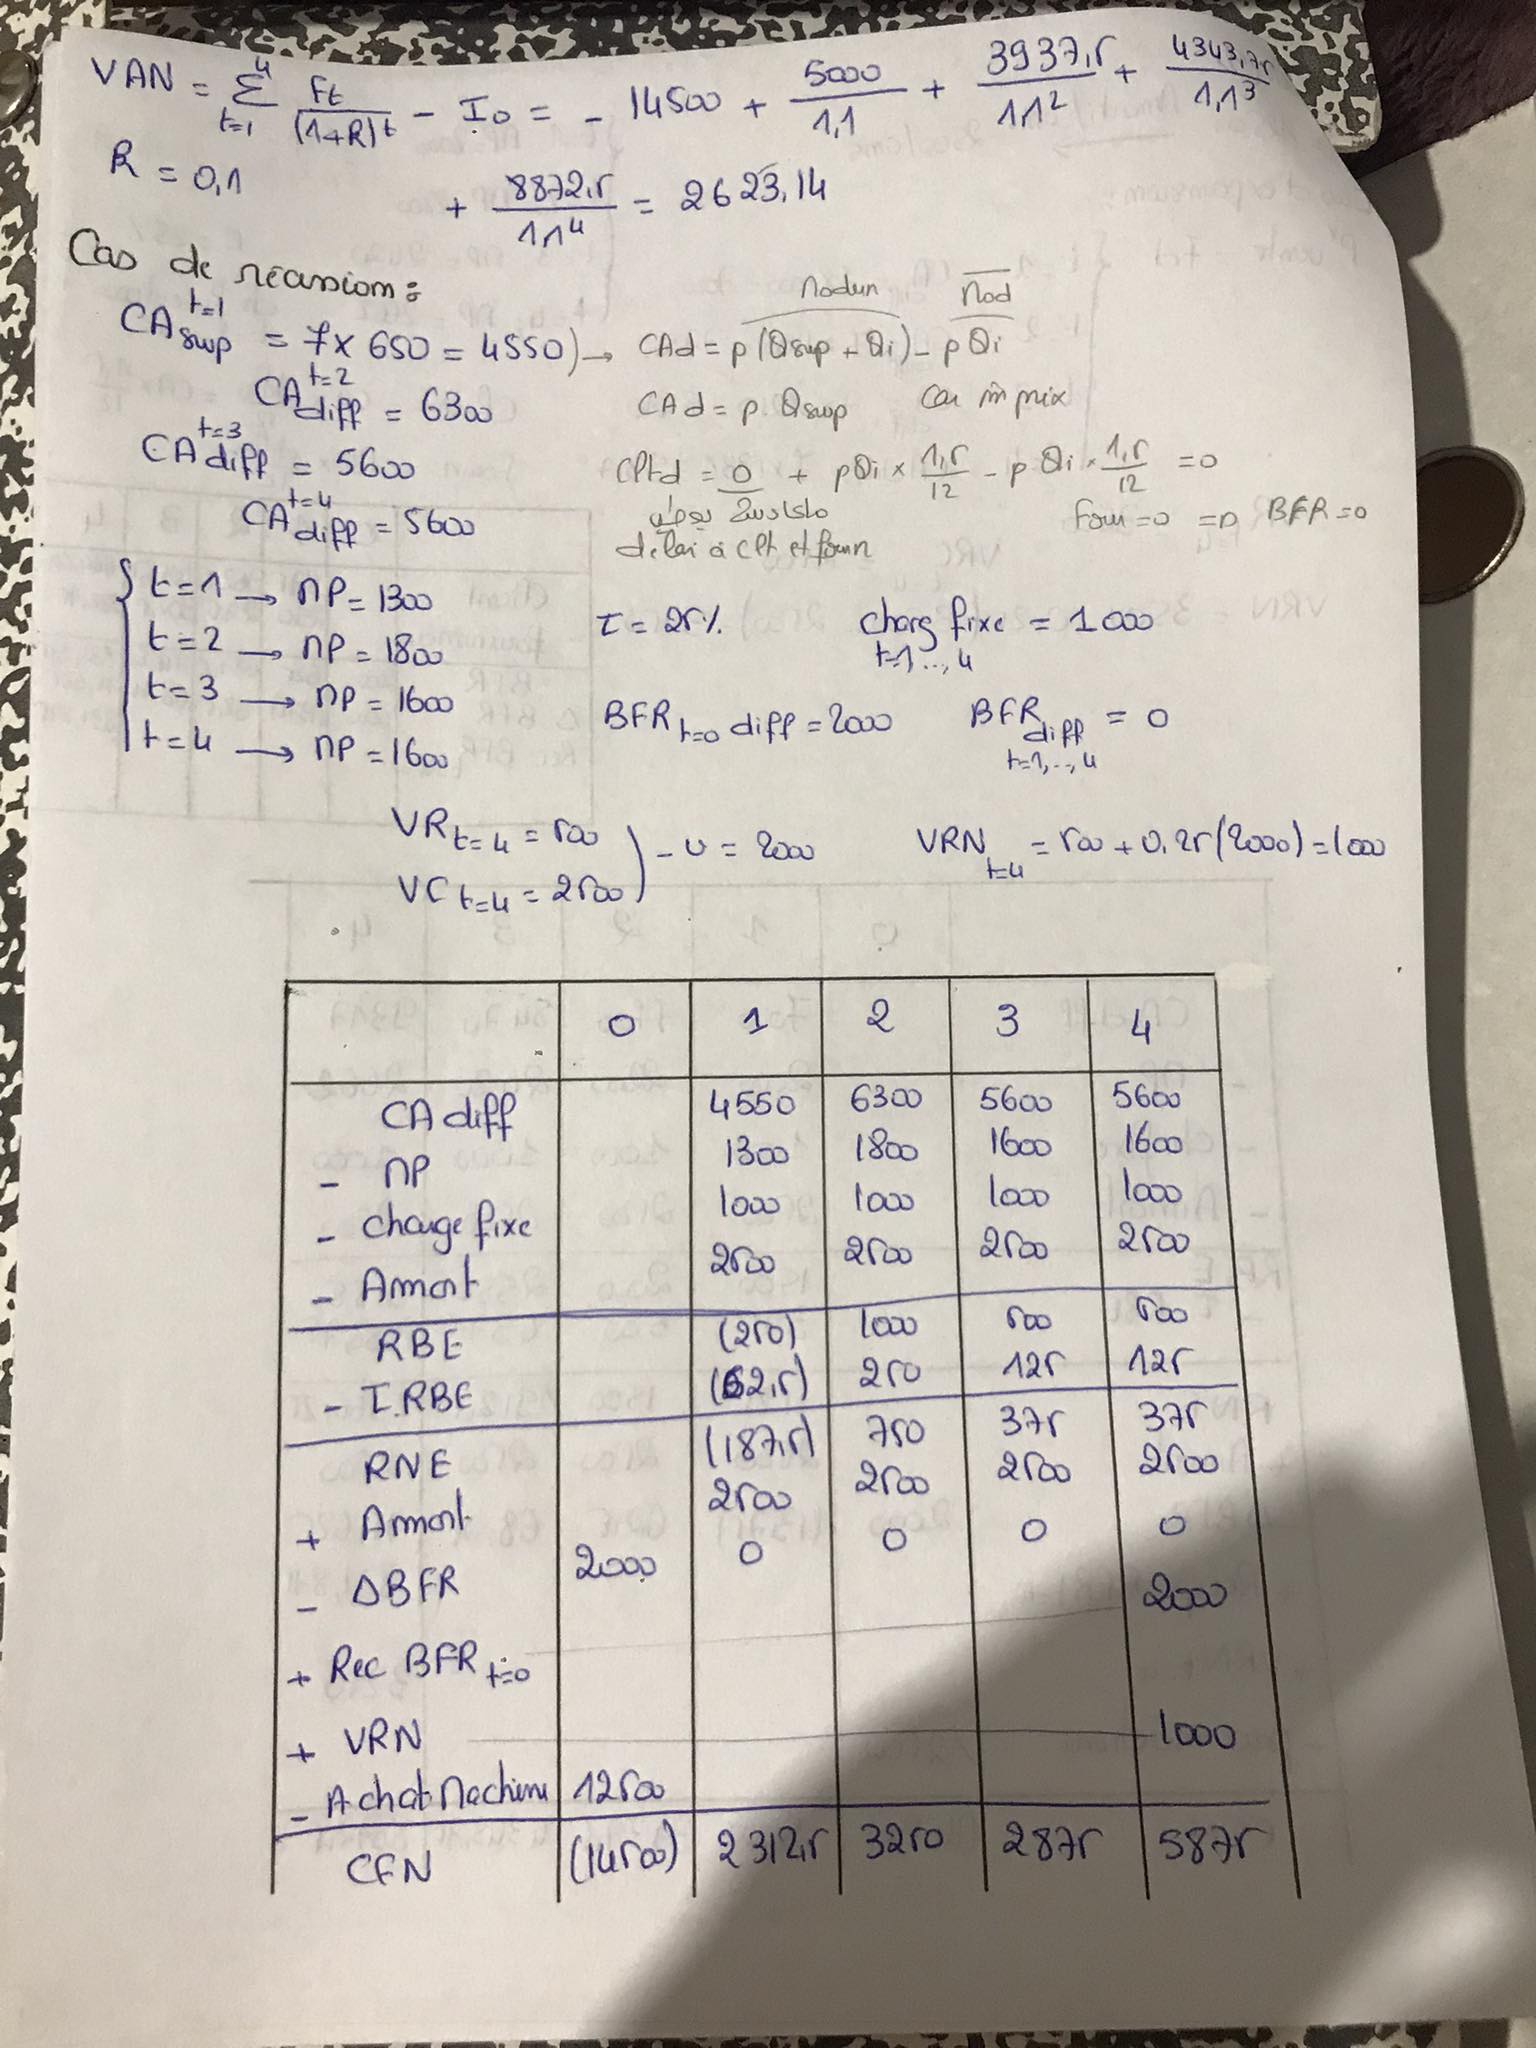 VAN = Σ⁴ₜ₌₁ Ft/(1+R)^t - I0 = - 14500 + 5000/1,1 + 3937,5/1,1² + 4343,75/1,1³
R = 0,1
+ 8872,5/1,1⁴ = 2623,14
Cas de récession :
CA sup t=1 = 7 x 650 = 4550) → CAd = p(Qsup + Qi) - pQi
CA diff t=2 = 6300 CAd = p. Qsup Car m̄ prix
CA diff t=3 = 5600 Cltd = 0 + pQi x 1,5/12 - p Qi x 1,5/12 = 0
CA diff t=4 = 5600 Four = 0 => BFR = 0
délai à clt et fourn
t=1 → MP = 1300
t=2 → MP = 1800
t=3 → MP = 1600
t=4 → MP = 1600
T = 25% charg fixe t=1,..,4 = 1000
BFR t=0 diff = 2000 BFR diff t=1,..,4 = 0
VR t=4 = 500
VC t=4 = 2500
- v = 2000 VRN t=4 = 500 + 0,25(2000) = 1000
0 1 2 3 4
CA diff 4550 6300 5600 5600
- MP 1300 1800 1600 1600
- charge fixe 1000 1000 1000 1000
- Amort 2500 2500 2500 2500
RBE (250) 1000 500 500
- T.RBE (62,5) 250 125 125
RNE (187,5) 750 375 375
+ Amort 2500 2500 2500 2500
- ΔBFR 2000 0 0 0 0
+ Rec BFR t=0 2000
+ VRN 1000
- Achat Machine 12500
CFN (14500) 2312,5 3250 2875 5875